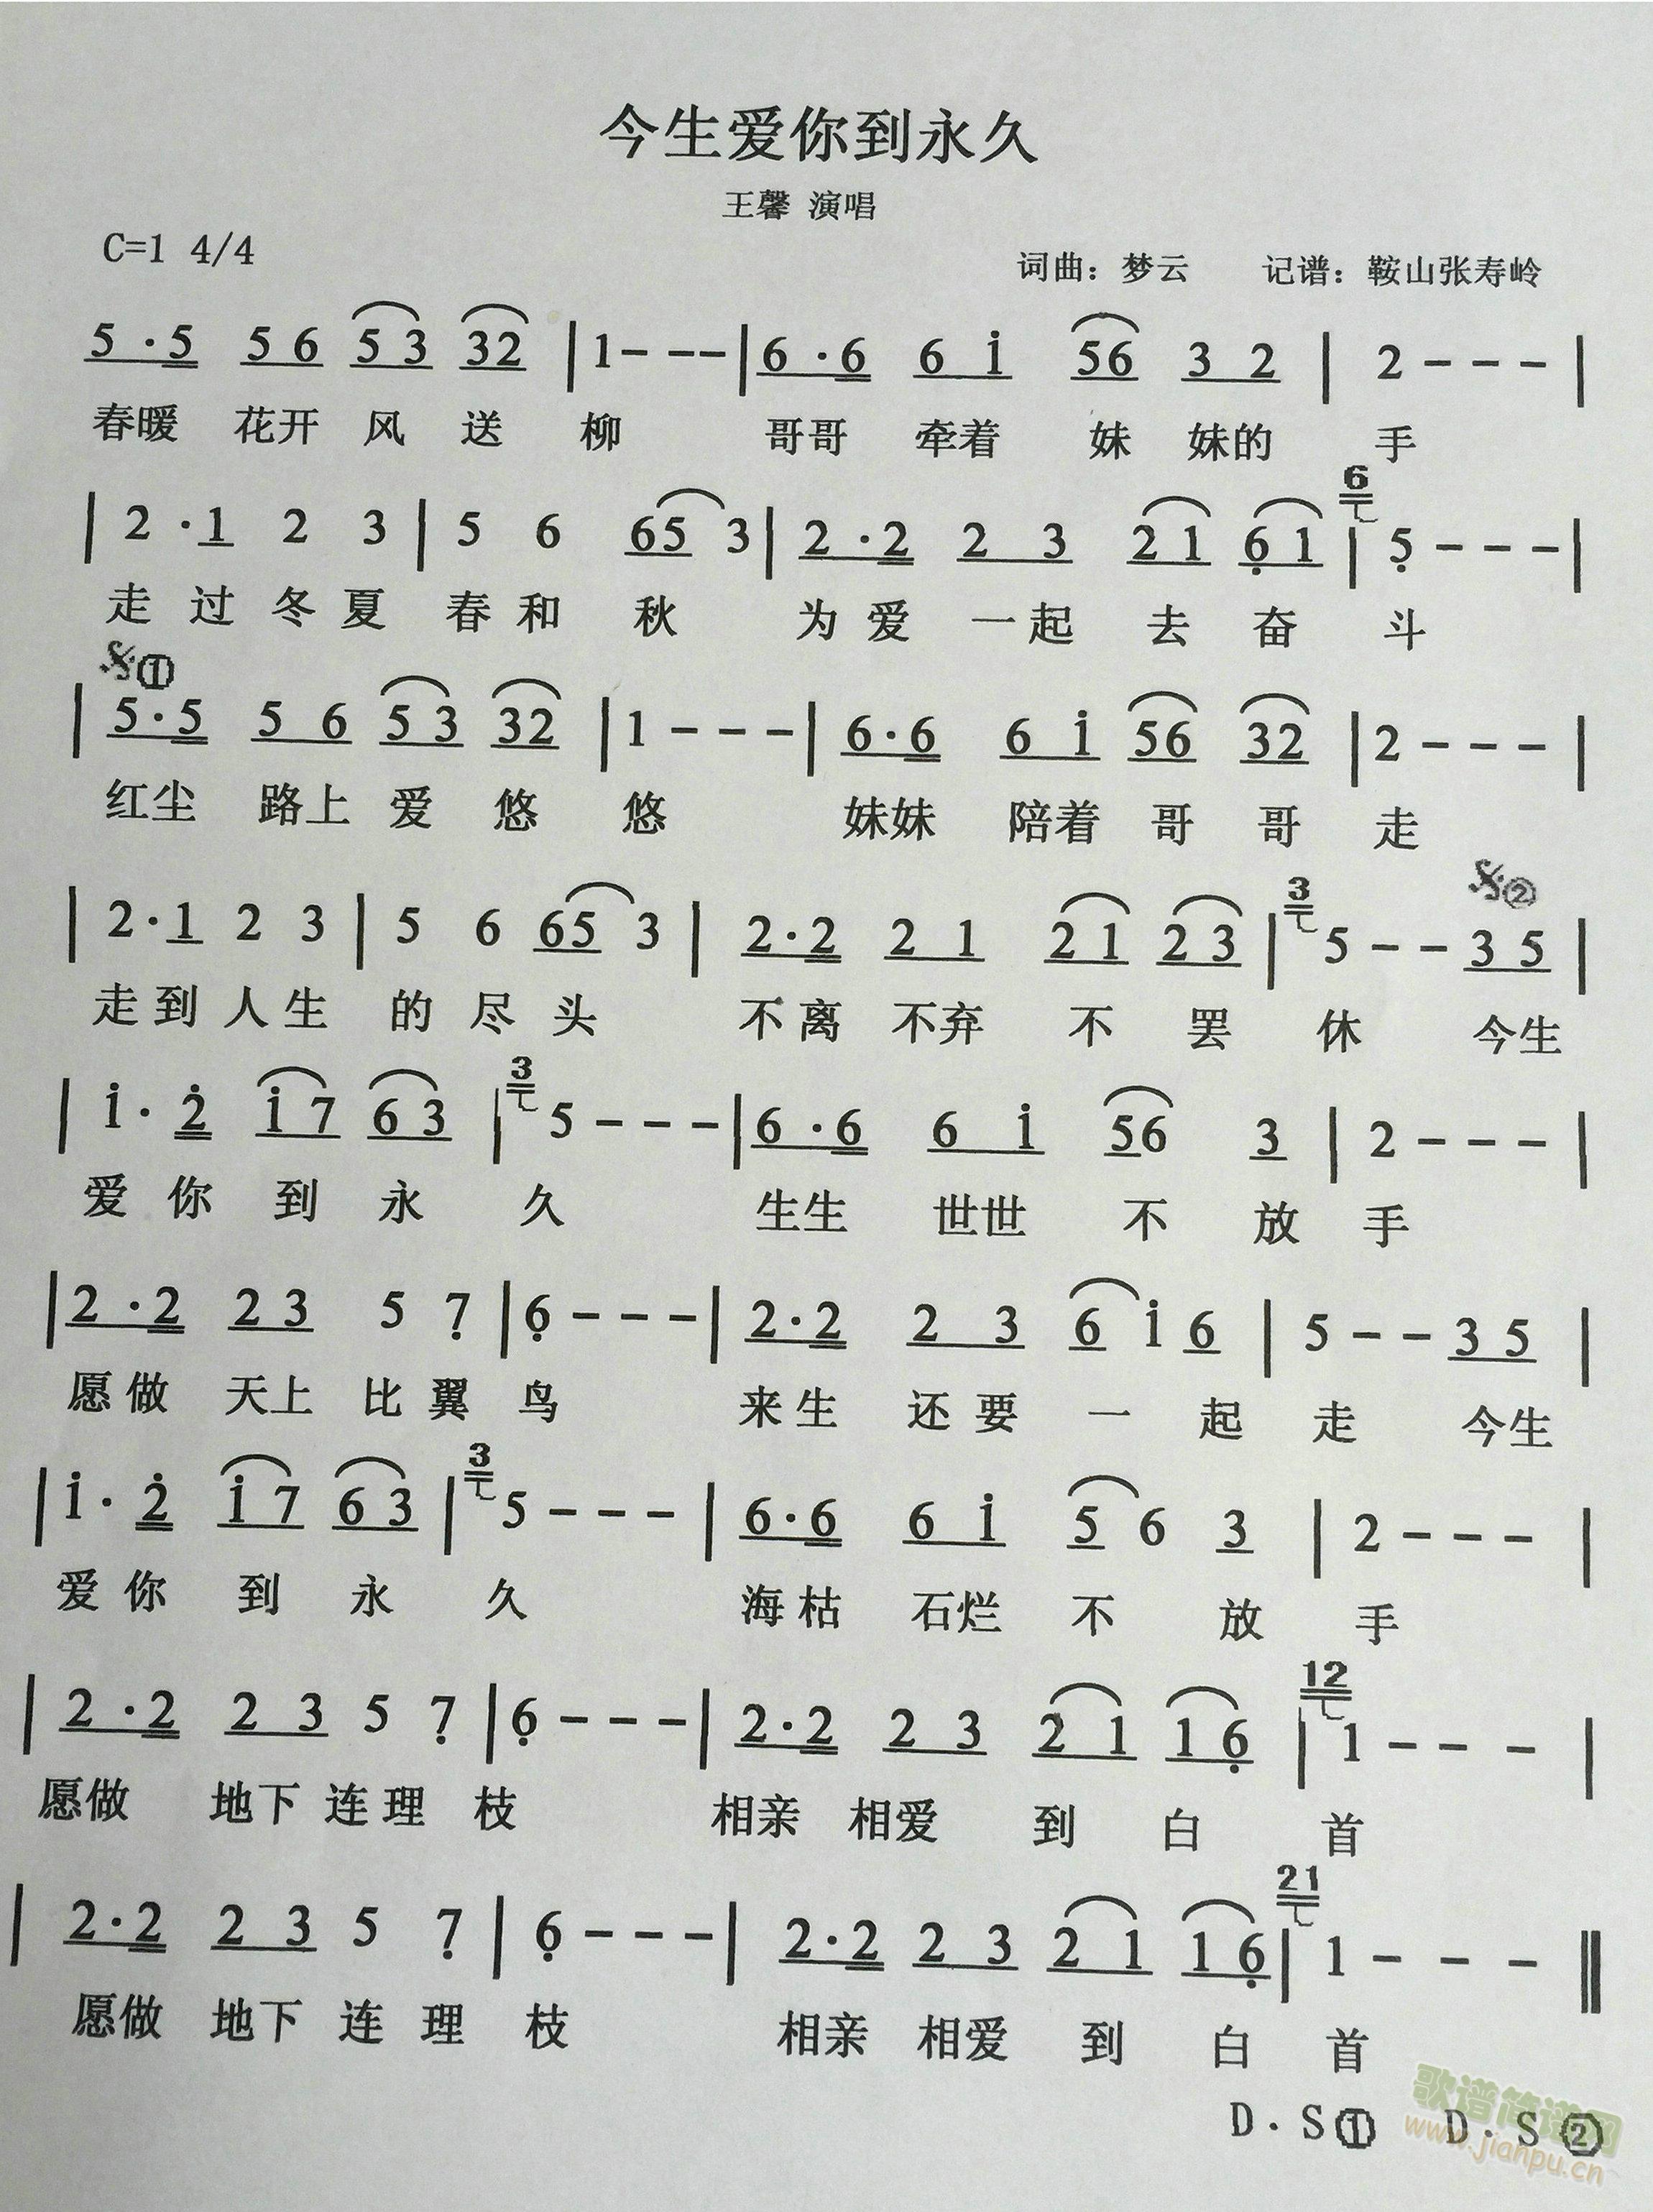 今生爱你到永久
王馨 演唱
C=1 4/4
词曲：梦云 记谱：鞍山张寿岭
5 ·5 5 6 5 3 32 | 1- -- | 6 ·6 6 i 56 3 2 | 2 - - - |
春暖 花开 风 送 柳 哥哥 牵着 妹 妹的 手
6
| 2 ·1 2 3 | 5 6 65 3 | 2 ·2 2 3 2 1 6̣ 1 | 5̣ - - - |
走 过 冬 夏 春 和 秋 为 爱 一起 去 奋 斗
𝄋①
| 5·5 5 6 5 3 32 | 1 - - - | 6·6 6 i 56 32 | 2 - - - |
红尘 路上 爱 悠 悠 妹妹 陪着 哥 哥 走
3 𝄋②
| 2·1 2 3 | 5 6 65 3 | 2·2 2 1 2 1 2 3 | 5 - - 3 5 |
走到 人生 的 尽 头 不离 不弃 不 罢 休 今生
3
| i· 2̇ i 7 6 3 | 5 - - - | 6 ·6 6 i 56 3 | 2 - - - |
爱 你 到 永 久 生生 世世 不 放 手
| 2 ·2 2 3 5 7̣ | 6̣ - - - | 2·2 2 3 6 i 6 | 5 - - 3 5 |
愿做 天上 比 翼 鸟 来生 还要 一 起 走 今生
3
| i· 2̇ i 7 6 3 | 5 - - - | 6·6 6 i 5 6 3 | 2 - - - |
爱 你 到 永 久 海枯 石烂 不 放 手
12
| 2 ·2 2 3 5 7̣ | 6̣ - - - | 2·2 2 3 2 1 1 6̣ | 1 - - - |
愿做 地下 连 理 枝 相亲 相爱 到 白 首
21
| 2·2 2 3 5 7̣ | 6̣ - - - | 2·2 2 3 2 1 1 6̣ | 1 - - - ‖
愿做 地下 连 理 枝 相亲 相爱 到 白 首
D·S① D·S②
歌谱简谱网
www.jianpu.cn